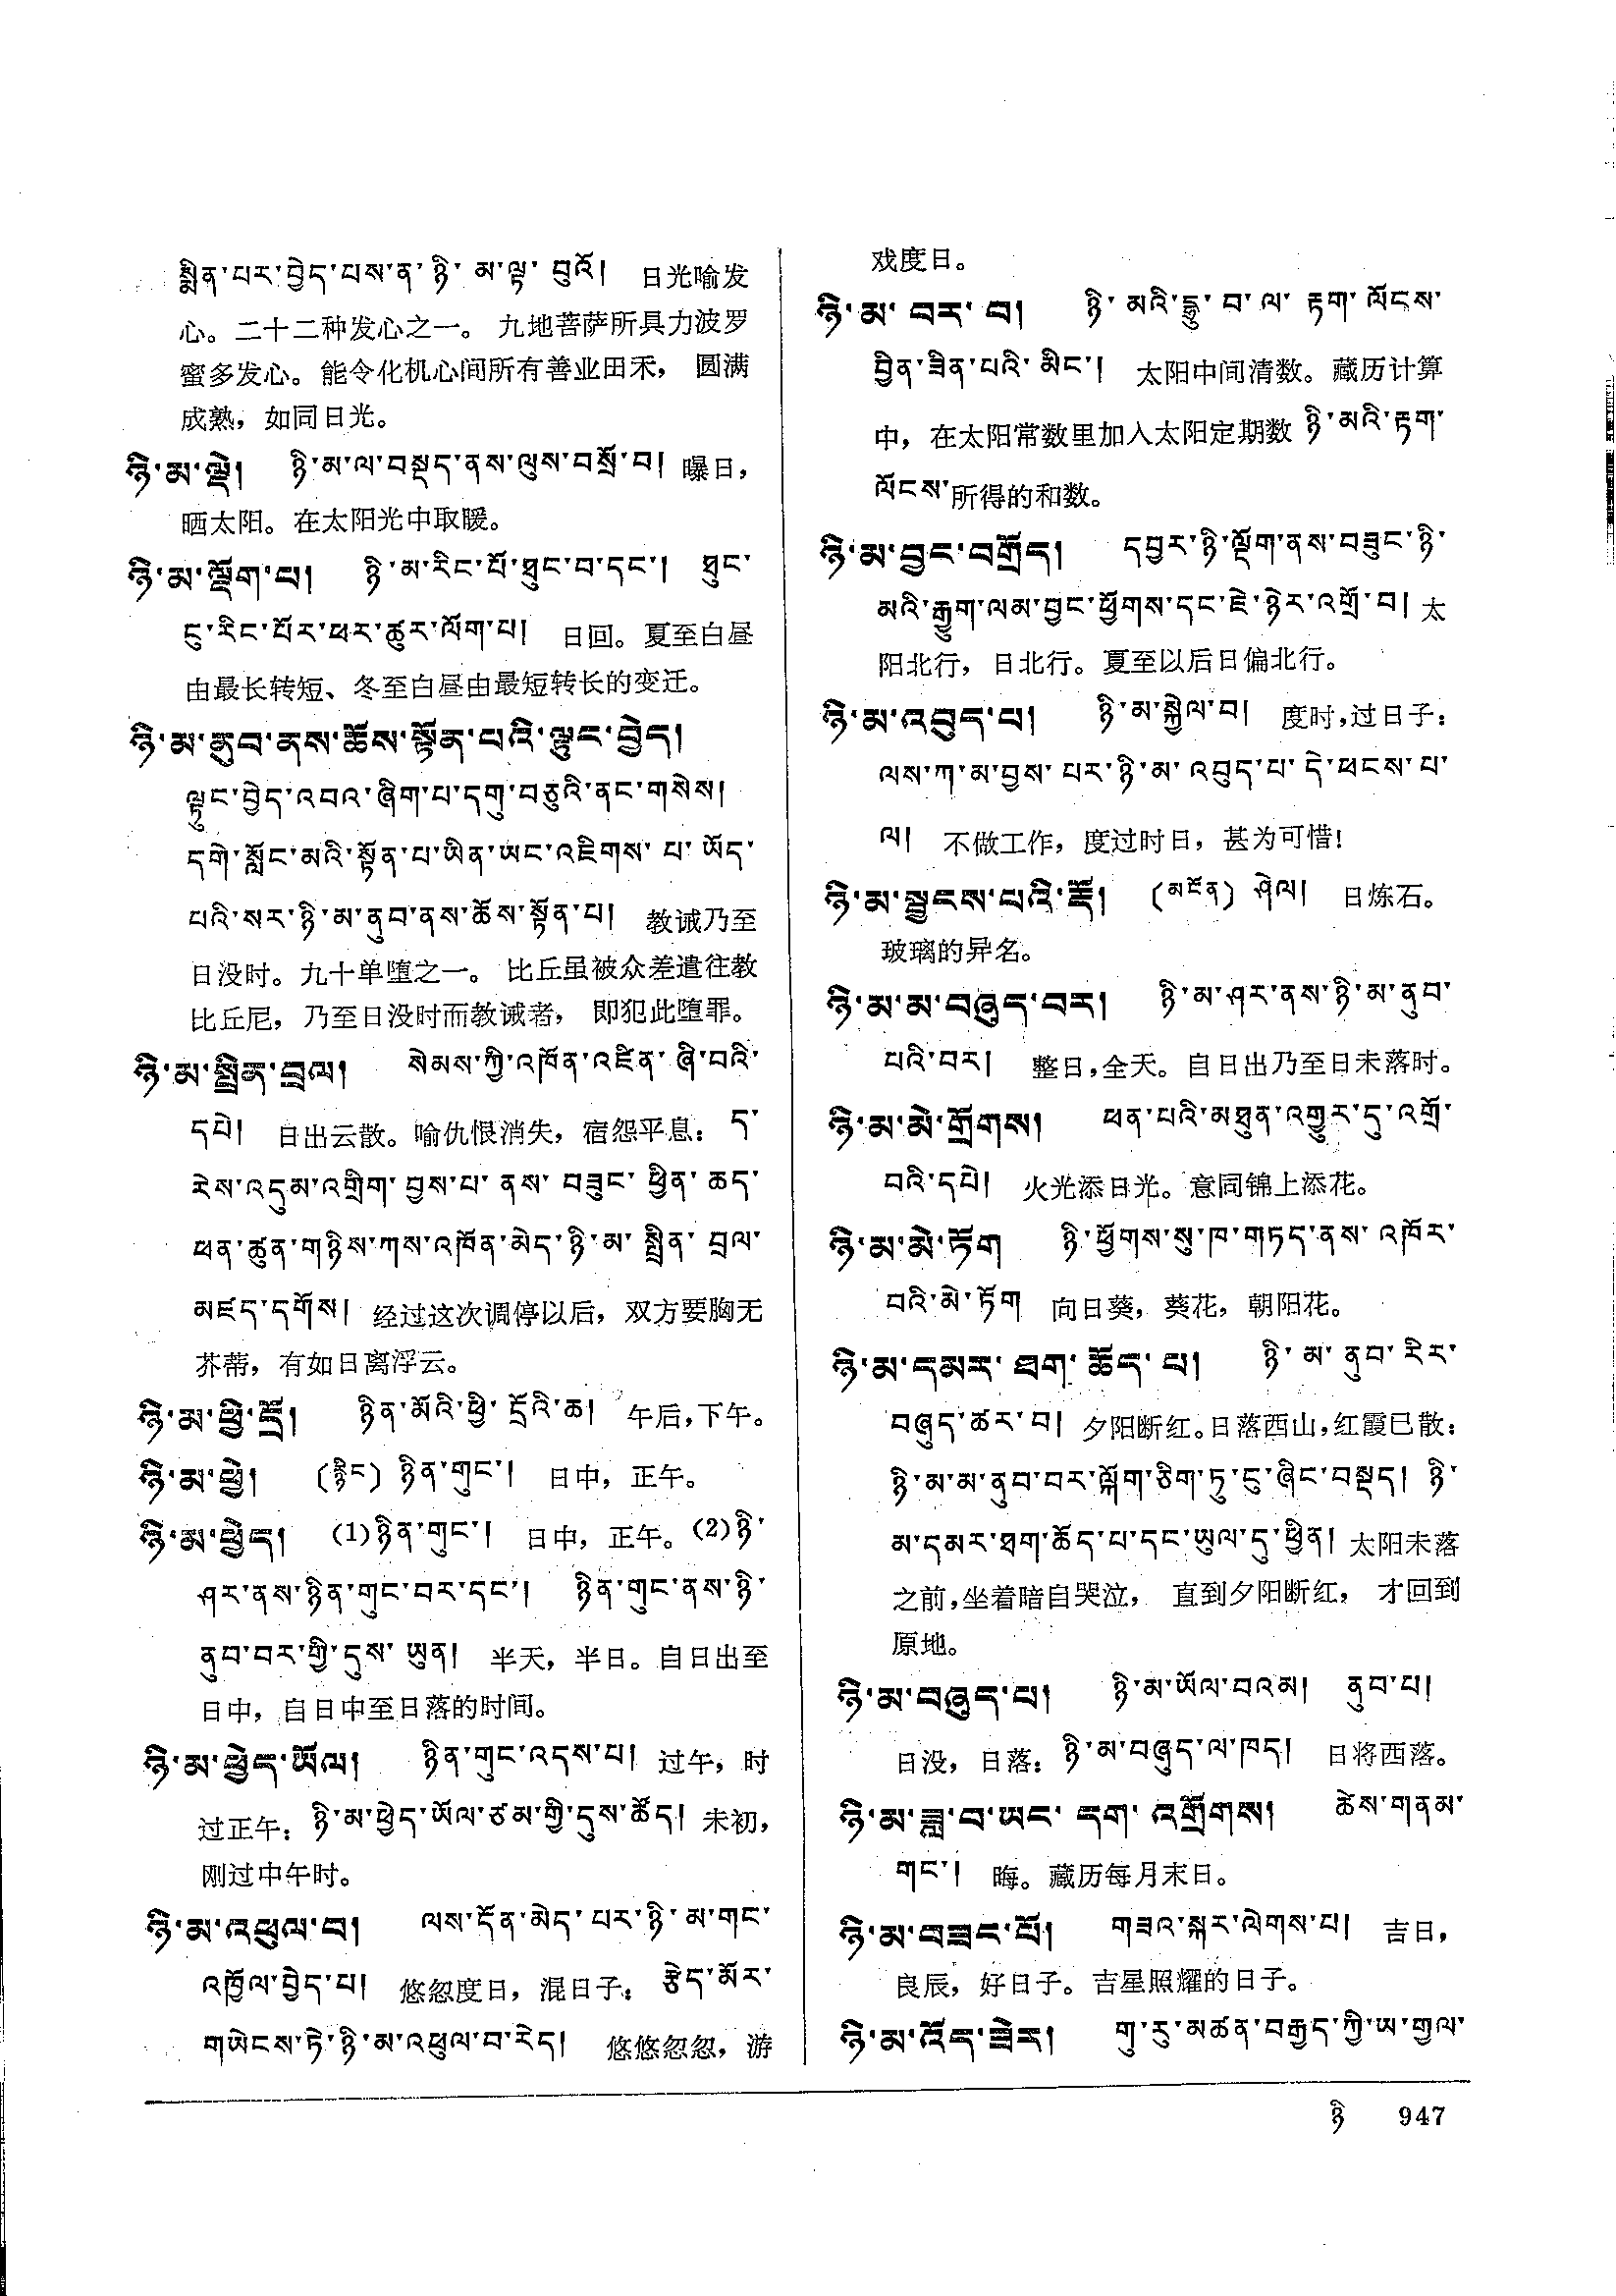 སྨིན་པར་བྱེད་པས་ན་ཉི་མ་ལྟ་བུའོ། 日光喻发
心。二十二种发心之一。九地菩萨所具力波罗
蜜多发心。能令化机心间所有善业田禾，圆满
成熟，如同日光。
ཉི་མ་ལྡེ། ཉི་མ་ལ་བསྡད་ནས་ལུས་བསྲོ་བ། 曝日，
晒太阳。在太阳光中取暖。
ཉི་མ་ལྡོག་པ། ཉི་མ་རིང་པོ་ཐུང་བ་དང་། ཐུང་
ངུ་རིང་པོར་ཕར་ཚུར་ལོག་པ། 日回。夏至白昼
由最长转短、冬至白昼由最短转长的变迁。
ཉི་མ་ནུབ་ནས་ཆོས་སྟོན་པའི་ལྟུང་བྱེད།
ལྟུང་བྱེད་འབའ་ཞིག་པ་དགུ་བཅུའི་ནང་གསེས།
དགེ་སློང་མའི་སྟོན་པ་ཡིན་ཡང་འཇིགས་པ་ཡོད་
པའི་སར་ཉི་མ་ནུབ་ནས་ཆོས་སྟོན་པ། 教诫乃至
日没时。九十单堕之一。比丘虽被众差遣往教
比丘尼，乃至日没时而教诫者，即犯此堕罪。
ཉི་མ་སྤྲིན་བྲལ། སེམས་ཀྱི་འཁོན་འཛིན་ཞི་བའི་
དཔེ། 日出云散。喻仇恨消失，宿怨平息：ད་
རེས་འདུམ་འགྲིག་བྱས་པ་ནས་བཟུང་ཕྱིན་ཆད་
ཕན་ཚུན་གཉིས་ཀས་འཁོན་མེད་ཉི་མ་སྤྲིན་བྲལ་
མཛད་དགོས། 经过这次调停以后，双方要胸无
芥蒂，有如日离浮云。
ཉི་མ་ཕྱི་དྲོ། ཉིན་མོའི་ཕྱི་དྲོའི་ཆ། 午后，下午。
ཉི་མ་ཕྱེ། (རྙིང) ཉིན་གུང་། 日中，正午。
ཉི་མ་ཕྱེད། (1)ཉིན་གུང་། 日中，正午。(2)ཉི་
ཤར་ནས་ཉིན་གུང་བར་དང་། ཉིན་གུང་ནས་ཉི་
ནུབ་བར་གྱི་དུས་ཡུན། 半天，半日。自日出至
日中，自日中至日落的时间。
ཉི་མ་ཕྱེད་ཡོལ། ཉིན་གུང་འདས་པ། 过午，时
过正午：ཉི་མ་ཕྱེད་ཡོལ་ཙམ་གྱི་དུས་ཚོད། 未初，
刚过中午时。
ཉི་མ་འཕུལ་བ། ལས་དོན་མེད་པར་ཉི་མ་གང་
འཁྱོལ་བྱེད་པ། 悠忽度日，混日子：རྩེད་མོར་
གཡེངས་ཏེ་ཉི་མ་འཕུལ་བ་རེད། 悠悠忽忽，游
戏度日。
ཉི་མ་བར་བ། ཉི་མའི་དྷྲུ་བ་ལ་རྟག་ལོངས་
བྱིན་ཟིན་པའི་མིང་། 太阳中间清数。藏历计算
中，在太阳常数里加入太阳定期数 ཉི་མའི་རྟག་
ལོངས་所得的和数。
ཉི་མ་བྱང་བགྲོད། དབྱར་ཉི་ལྡོག་ནས་བཟུང་ཉི་
མའི་རྒྱུག་ལམ་བྱང་ཕྱོགས་དང་ཇེ་ཉེར་འགྲོ་བ། 太
阳北行，日北行。夏至以后日偏北行。
ཉི་མ་འབུད་པ། ཉི་མ་སྐྱེལ་བ། 度时，过日子：
ལས་ཀ་མ་བྱས་པར་ཉི་མ་འབུད་པ་དེ་ཕངས་པ་
ལ། 不做工作，度过时日，甚为可惜！
ཉི་མ་སྦྱངས་པའི་རྡོ། (མངོན) ཤེལ། 日炼石。
玻璃的异名。
ཉི་མ་མ་བཞུད་བར། ཉི་མ་ཤར་ནས་ཉི་མ་ནུབ་
པའི་བར། 整日，全天。自日出乃至日未落时。
ཉི་མ་མེ་གྲོགས། ཕན་པའི་མཐུན་འགྱུར་དུ་འགྲོ་
བའི་དཔེ། 火光添日光。意同锦上添花。
ཉི་མ་མེ་ཏོག ཉི་ཕྱོགས་སུ་ཁ་གཏད་ནས་འཁོར་
བའི་མེ་ཏོག 向日葵，葵花，朝阳花。
ཉི་མ་དམར་ཐག་ཆོད་པ། ཉི་མ་ནུབ་རིར་
བཞུད་ཚར་བ། 夕阳断红。日落西山，红霞已散：
ཉི་མ་མ་ནུབ་བར་ལྐོག་ཅིག་ཏུ་ངུ་ཞིང་བསྡད། ཉི་
མ་དམར་ཐག་ཆོད་པ་དང་ཡུལ་དུ་ཕྱིན། 太阳未落
之前，坐着暗自哭泣，直到夕阳断红，才回到
原地。
ཉི་མ་བཞུད་པ། ཉི་མ་ཡོལ་བའམ། ནུབ་པ།
日没，日落：ཉི་མ་བཞུད་ལ་ཁད། 日将西落。
ཉི་མ་ཟླ་བ་ཡང་དག་འགྲོགས། ཚེས་གནམ་
གང་། 晦。藏历每月末日。
ཉི་མ་བཟང་པོ། གཟའ་སྐར་ལེགས་པ། 吉日，
良辰，好日子。吉星照耀的日子。
ཉི་མ་འོད་ཟེར། གུ་རུ་མཚན་བརྒྱད་ཀྱི་ཡ་གྱལ་
ཉི 947